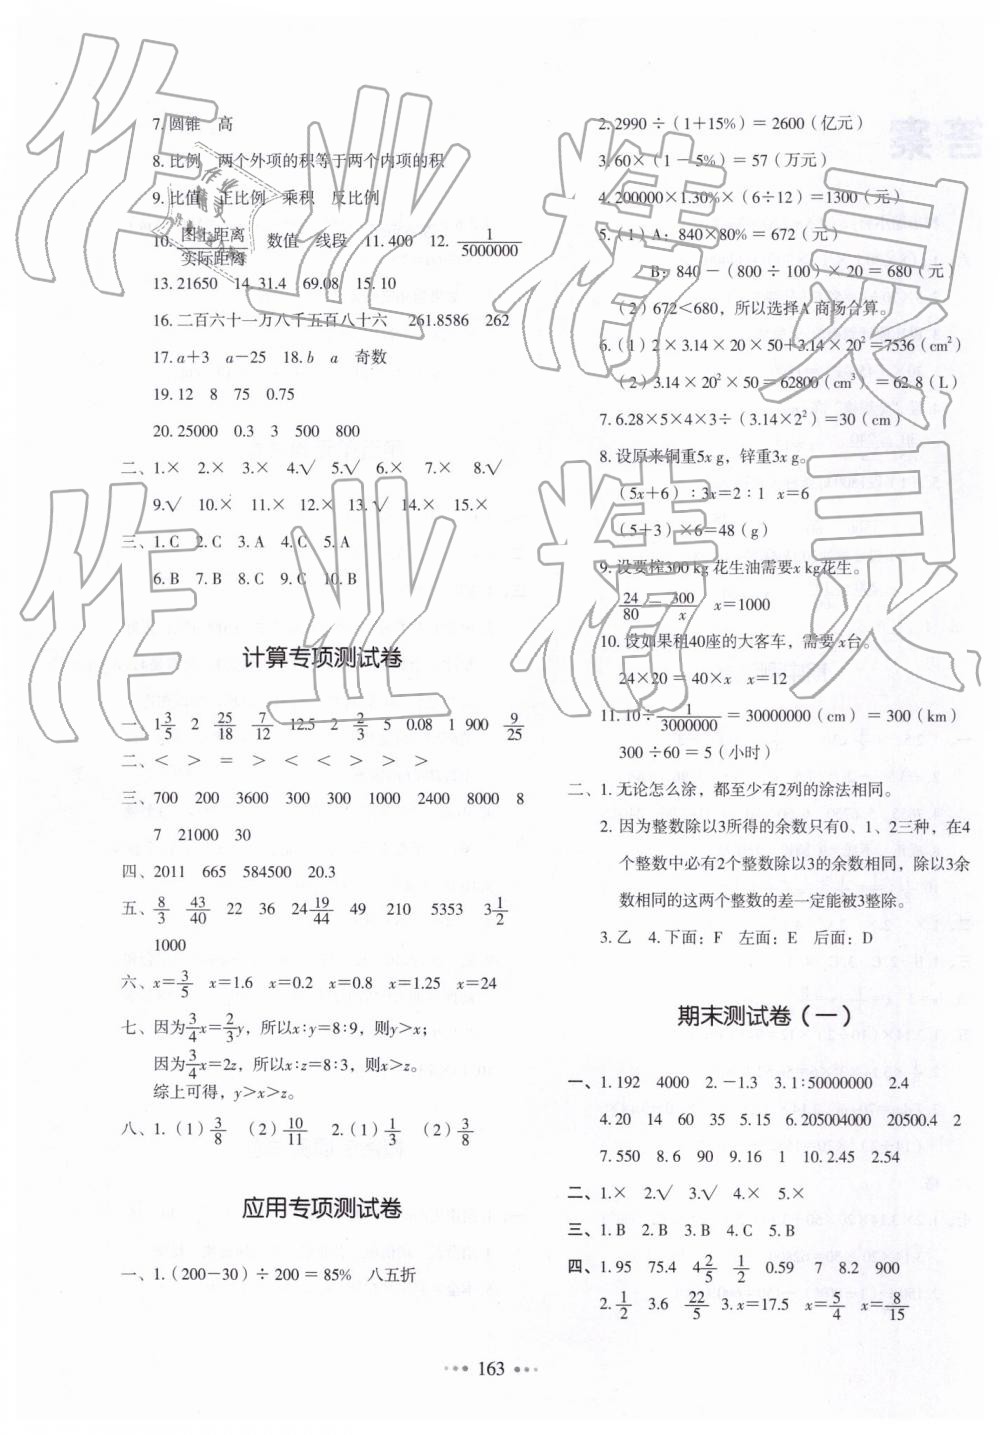 7. 圆锥 高
8. 比例 两个外项的积等于两个内项的积
9. 比值 正比例 乘积 反比例
10. 图上距离/实际距离 数值 线段 11. 400 12. 1/5000000
13. 21650 14. 31.4 69.08 15. 10
16. 二百六十一万八千五百八十六 261.8586 262
17. a+3 a-25 18. b a 奇数
19. 12 8 75 0.75
20. 25000 0.3 3 500 800
二、1.× 2.× 3.× 4.√ 5.√ 6.× 7.× 8.√
9.√ 10.× 11.× 12.× 13.√ 14.× 15.×
三、1. C 2. C 3. A 4. C 5. A
6. B 7. B 8. C 9. C 10. B
计算专项测试卷
一、1 3/5 2 25/18 7/12 12.5 2 2/3 5 0.08 1 900 9/25
二、< > = > < < > > >
三、700 200 3600 300 300 1000 2400 8000 8
7 21000 30
四、2011 665 584500 20.3
五、8/3 43/40 22 36 24 19/44 49 210 5353 3 1/2
1000
六、x=3/5 x=1.6 x=0.2 x=0.8 x=1.25 x=24
七、因为3/4x=2/3y，所以x∶y=8∶9，则y>x；
因为3/4x=2z，所以x∶z=8∶3，则x>z。
综上可得，y>x>z。
八、1.（1）3/8 （2）10/11 2.（1）1/3 （2）3/8
应用专项测试卷
一、1.（200-30）÷200=85% 八五折
2. 2990÷（1+15%）=2600（亿元）
3. 60×（1-5%）=57（万元）
4. 200000×1.30%×（6÷12）=1300（元）
5.（1）A：840×80%=672（元）
B：840-（800÷100）×20=680（元）
（2）672<680，所以选择A商场合算。
6.（1）2×3.14×20×50+3.14×20²=7536（cm²）
（2）3.14×20²×50=62800（cm³）=62.8（L）
7. 6.28×5×4×3÷（3.14×2²）=30（cm）
8. 设原来铜重5x g，锌重3x g。
（5x+6）∶3x=2∶1 x=6
（5+3）×6=48（g）
9. 设要榨300 kg花生油需要x kg花生。
24/80=300/x x=1000
10. 设如果租40座的大客车，需要x台。
24×20=40×x x=12
11. 10÷1/3000000=30000000（cm）=300（km）
300÷60=5（小时）
二、1. 无论怎么涂，都至少有2列的涂法相同。
2. 因为整数除以3所得的余数只有0、1、2三种，在4
个整数中必有2个整数除以3的余数相同，除以3余
数相同的这两个整数的差一定能被3整除。
3. 乙 4. 下面：F 左面：E 后面：D
期末测试卷（一）
一、1. 192 4000 2. -1.3 3. 1∶50000000 2.4
4. 20 14 60 35 5. 15 6. 205004000 20500.4 2
7. 550 8. 6 90 9. 16 1 10. 2.45 2.54
二、1.× 2.√ 3.√ 4.× 5.×
三、1. B 2. B 3. B 4. C 5. B
四、1. 95 75.4 4 2/5 1/2 0.59 7 8.2 900
2. 1/2 3.6 22/5 3. x=17.5 x=5/4 x=8/15
163
作业精灵
作业精灵
答案